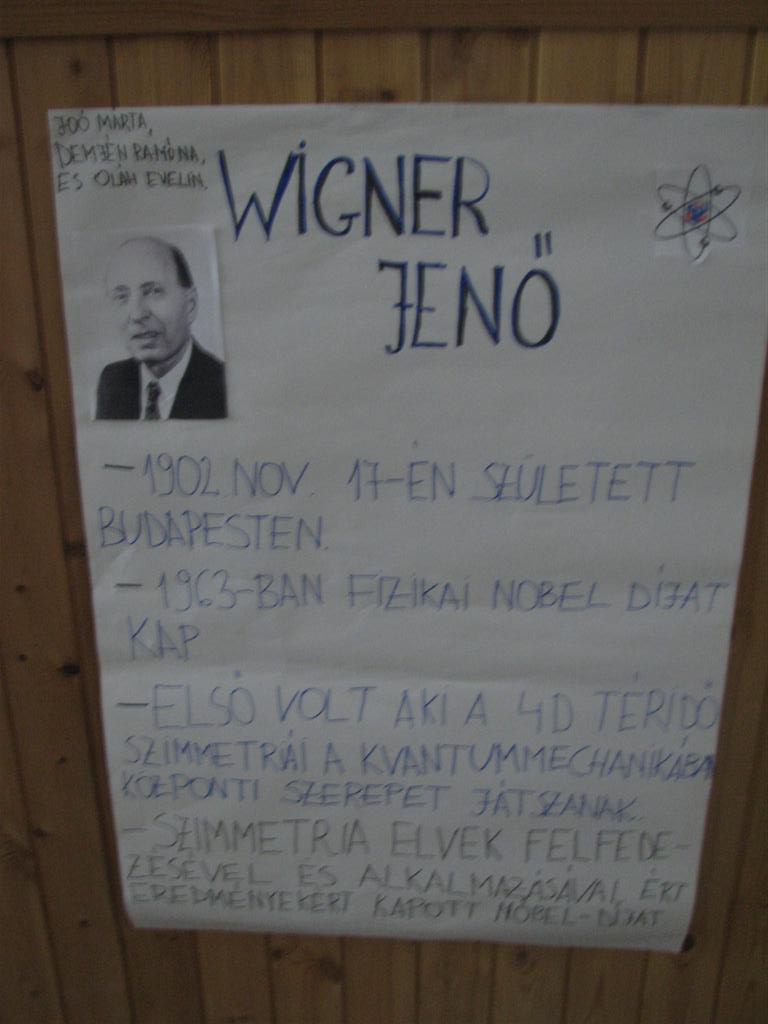 JOÓ MÁRTA,
DEMJÉN RAMÓNA,
ÉS OLÁH EVELIN.
WIGNER
JENŐ
- 1902 NOV. 17-ÉN SZÜLETETT
BUDAPESTEN.
- 1963-BAN FIZIKAI NOBEL DÍJAT
KAP
- ELSŐ VOLT AKI A 4D TÉRIDŐ
SZIMMETRIÁI A KVANTUMMECHANIKÁBAN
KÖZPONTI SZEREPET JÁTSZANAK.
- SZIMMETRIA ELVEK FELFEDE-
ZÉSÉVEL ÉS ALKALMAZÁSÁVAL ÉRT
EREDMÉNYEKÉRT KAPOTT NOBEL-DÍJAT